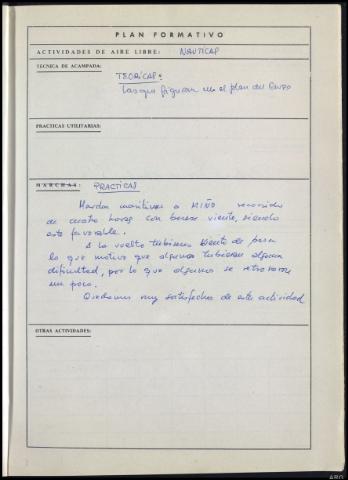 PLAN FORMATIVO
ACTIVIDADES DE AIRE LIBRE: NAUTICAS
TECNICA DE ACAMPADA:
TEORICAS:
Las que figuran en el plan del Curso
PRACTICAS UTILITARIAS:
MARCHAS: PRACTICAS
Marcha maritima a MIÑO recorrido
de cuatro horas con buen viento, siendo
este favorable.
A la vuelta tubimos viento de proa
lo que motivo que algunos tubieran alguna
dificultad, por lo que algunos se retrasaron
un poco.
Quedamos muy satisfechos de esta actividad
OTRAS ACTIVIDADES:
ARG